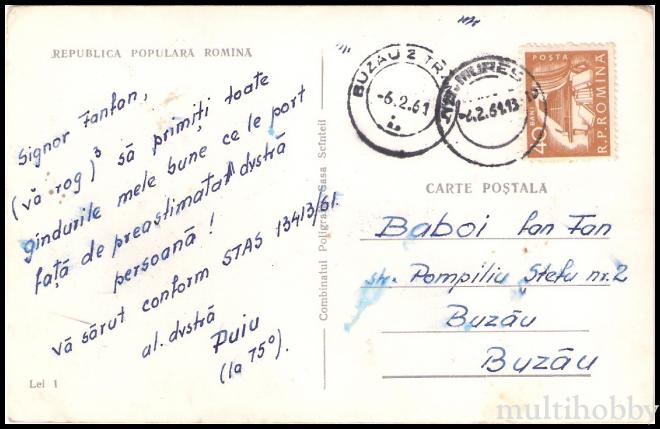 REPUBLICA POPULARĂ ROMÎNĂ
Signor Fanfan,
(vă rog)³ să primiți toate
gîndurile mele bune ce le port
față de preastimatat dvstră
persoană!
vă sărut conform STAS 13413/61.
al dvstră
Puiu
(la 75°).
Lei 1
Combinatul Poligrafic Casa Scînteii
BUZĂU 2 TR
-6.2.61
MUREȘ
-6.2.61.13
POSTA
40
R.P.ROMINA
CARTE POȘTALĂ
Baboi Fan Fan
str. Pompiliu Ștefu nr. 2
Buzău
Buzău
multihobby